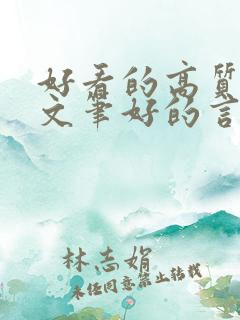 好看的高质
文笔好的言
林志娟
未经同意禁止转载